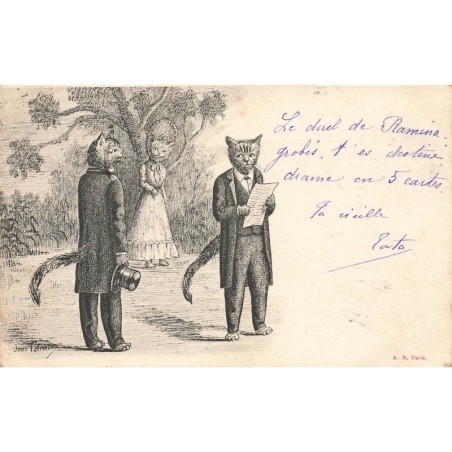 Le duel de Ramina
grobis, t'es destiné
drame en 5 cartes.
Ta vieille
Tata
A. R. Paris.